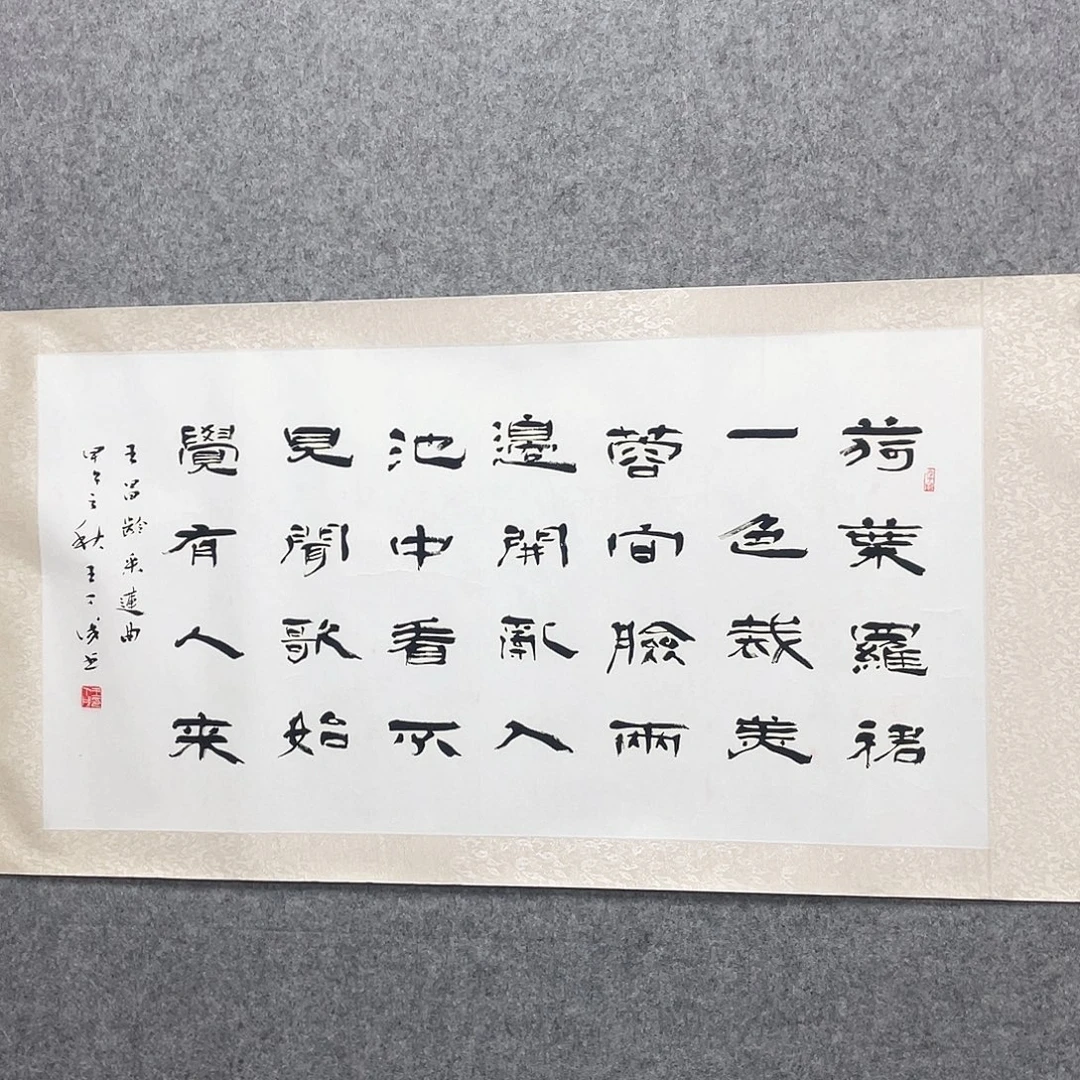 荷葉羅裙
一色裁芙
蓉向臉兩
邊開亂入
池中看不
見聞歌始
覺有人来
王昌齡采蓮曲
甲午秋王丁